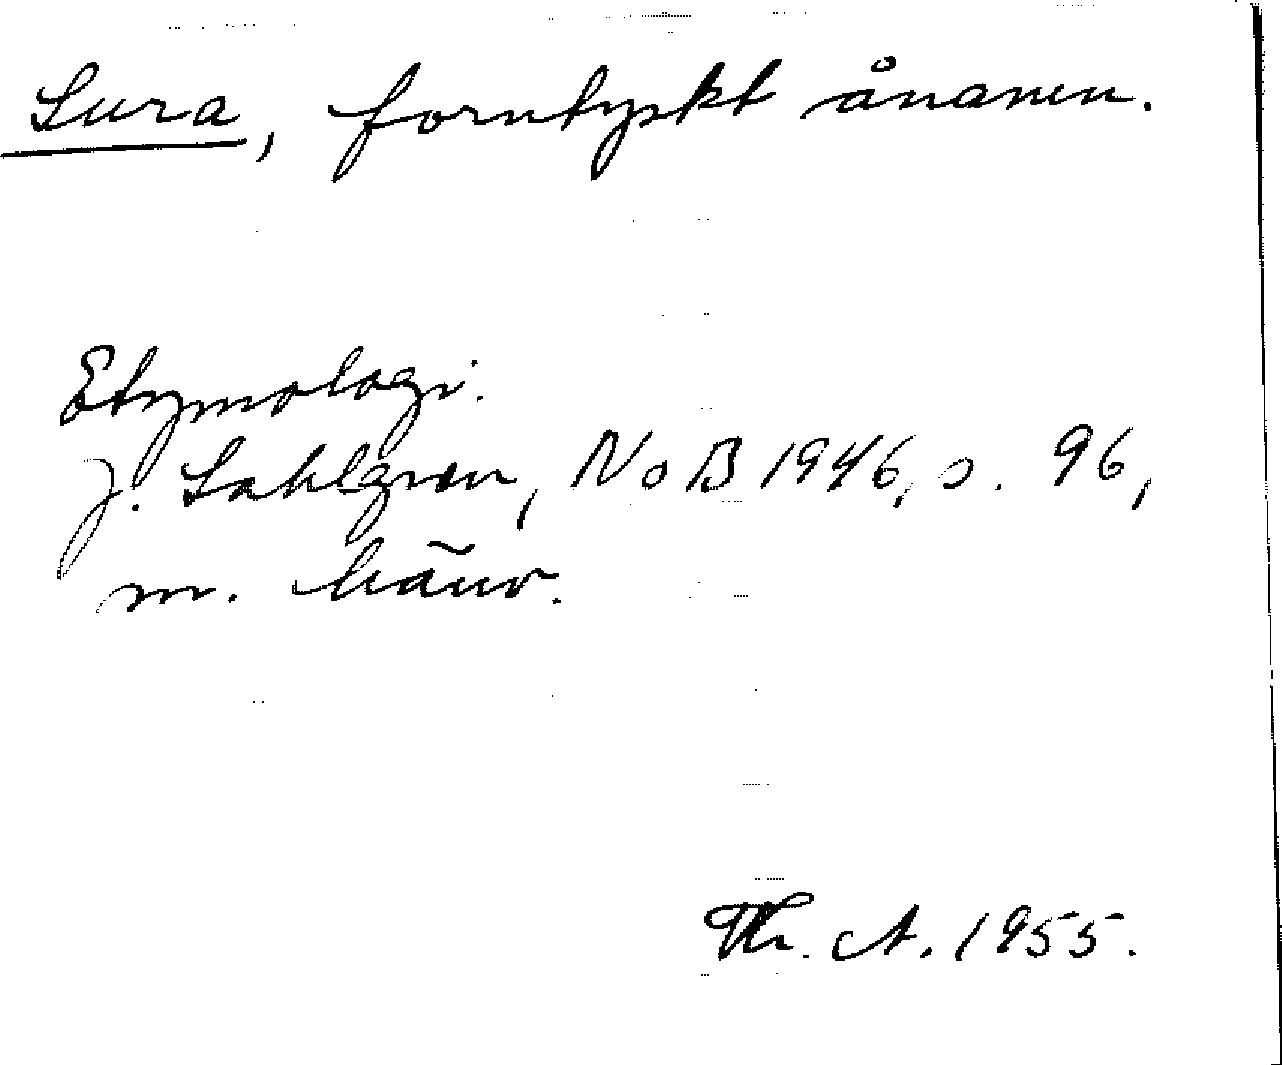 Sura, forntyskt ånamn.
Etymologi.
J. Sahlgren, NoB 1946, s. 96,
m. hänv.
Th. A. 1955.